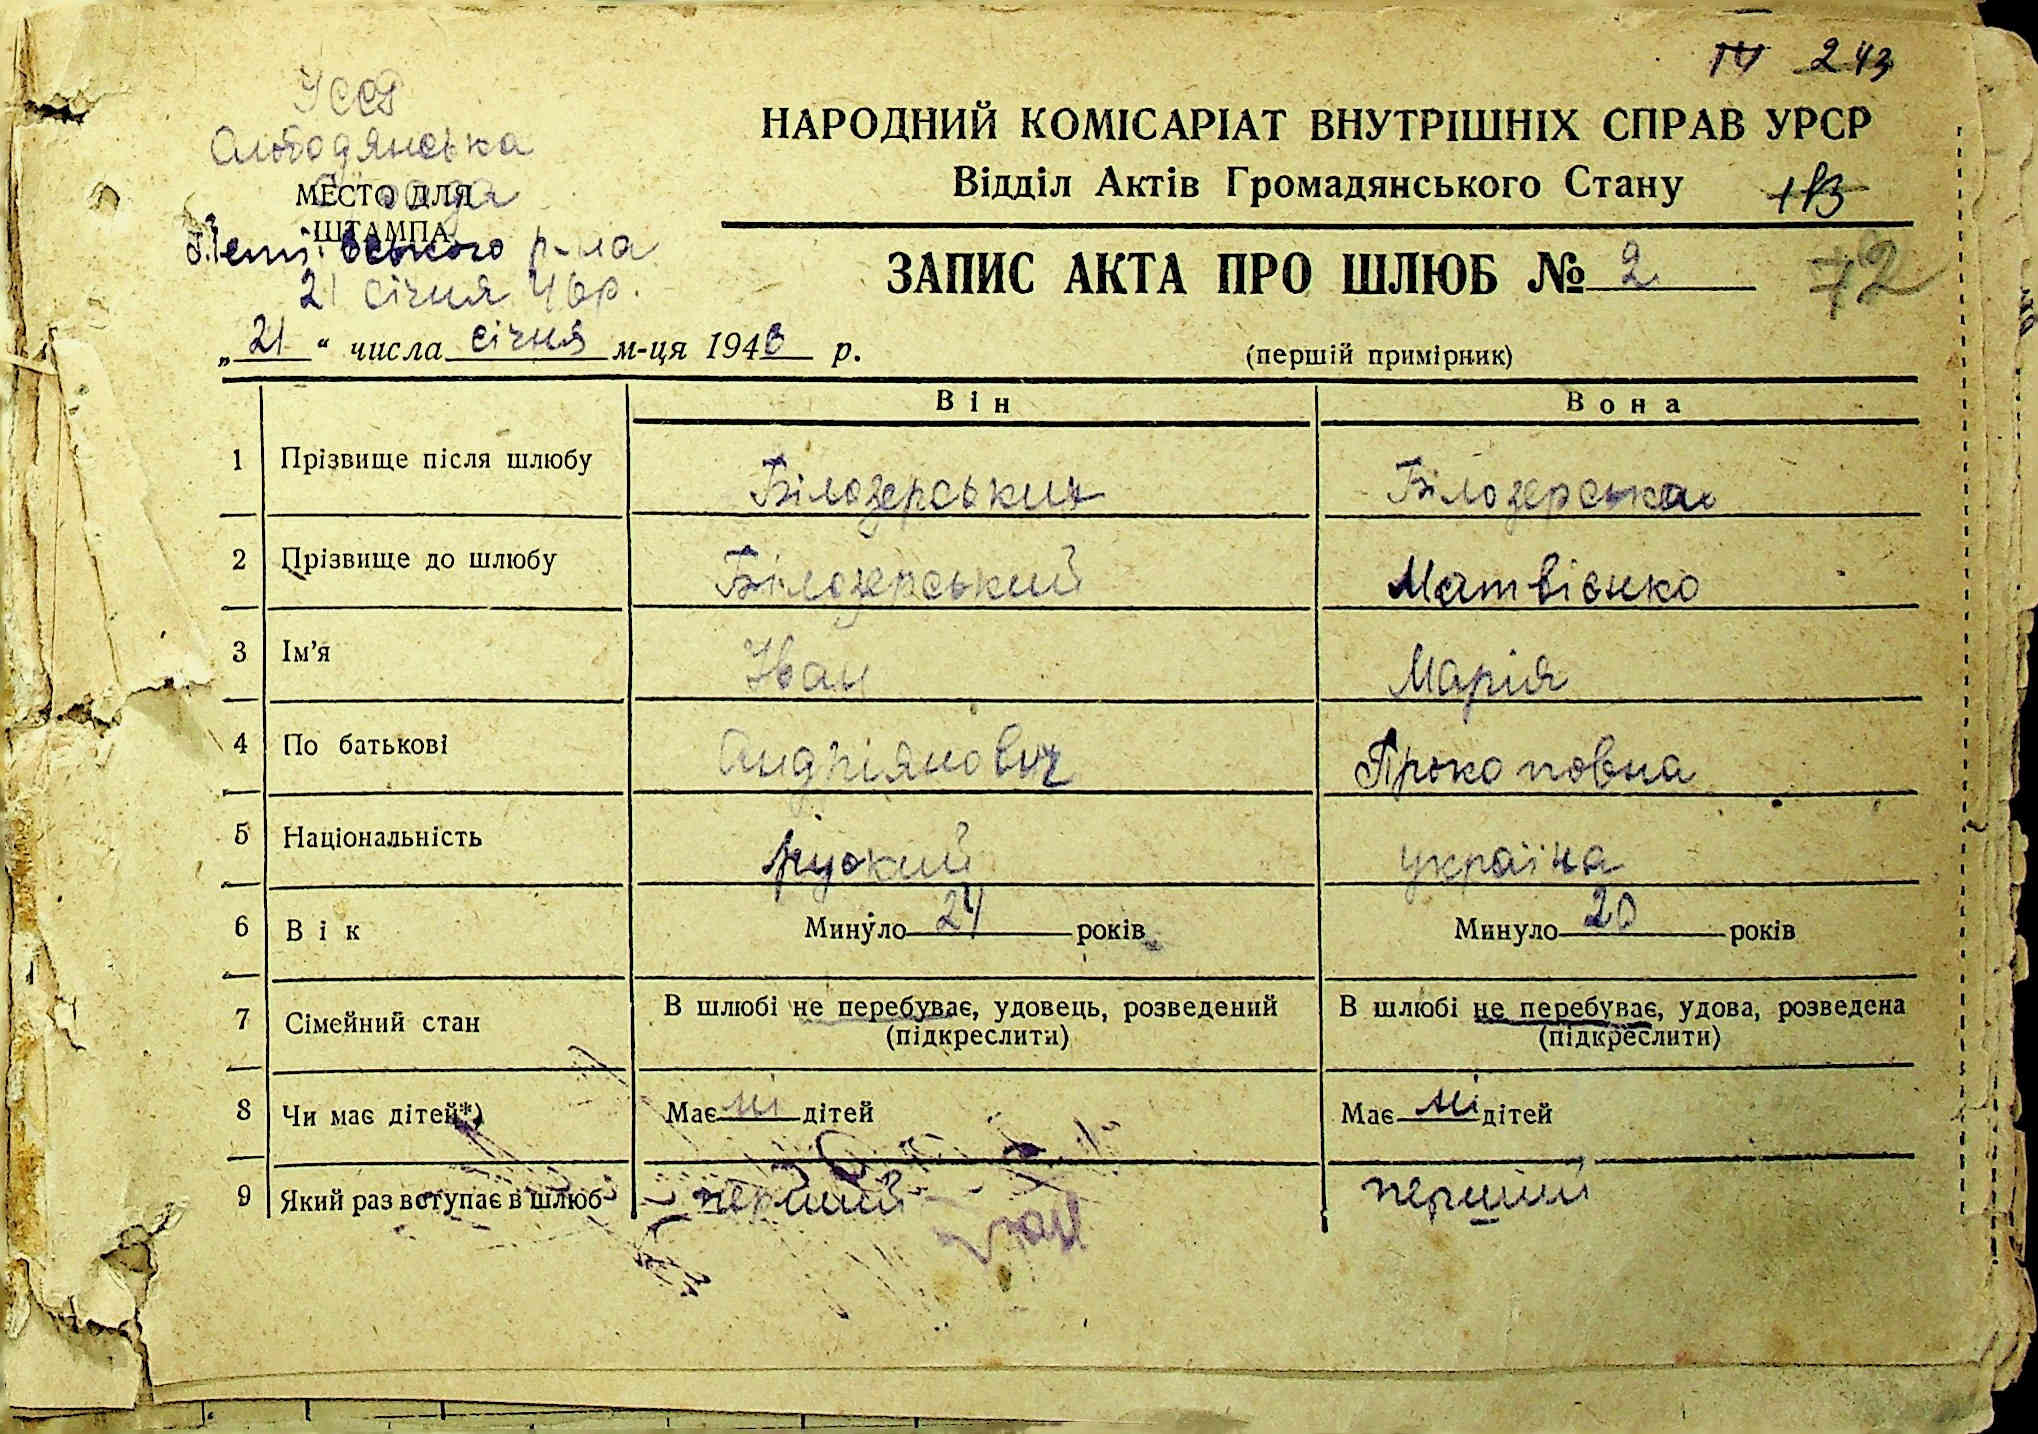 243
УССР
Слободянська
НАРОДНИЙ КОМІСАРІАТ ВНУТРІШНІХ СПРАВ УРСР
Відділ Актів Громадянського Стану
МЕСТО ДЛЯ рада
ШТАМПА
р-на
21 січня 46 р.
ЗАПИС АКТА ПРО ШЛЮБ № 2
72
„21“ числа січня м-ця 1946 р.
(першій примірник)
Він Вона
1 Прізвище після шлюбу Білозерський Білозерська
2 Прізвище до шлюбу Білозерський Матвієнко
3 Ім’я Иван Марія
4 По батькові Андріянович Прокоповна
5 Національність руский україна
6 Вік Минуло 24 років Минуло 20 років
7 Сімейний стан В шлюбі не перебуває, удовець, розведений (підкреслити) В шлюбі не перебуває, удова, розведена (підкреслити)
8 Чи має дітей*) Має ні дітей Має ні дітей
9 Який раз вступає в шлюб перший перший